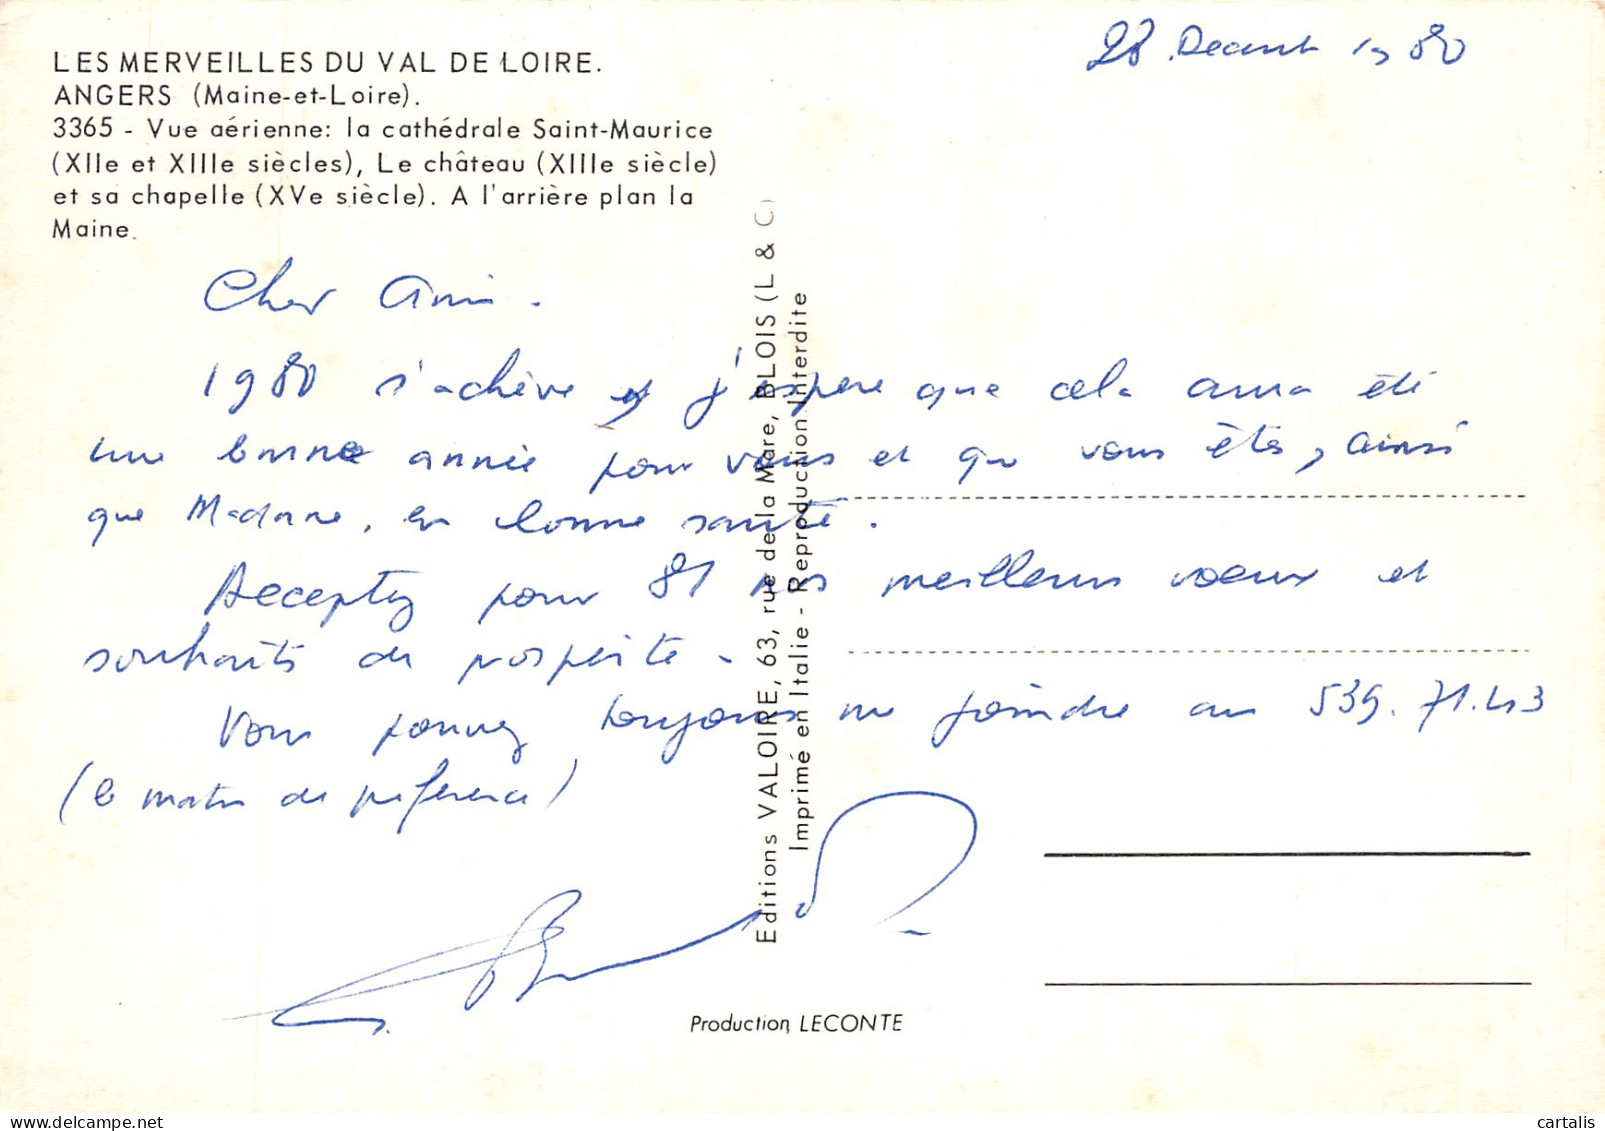 28 Decembre 1980
LES MERVEILLES DU VAL DE LOIRE.
ANGERS (Maine-et-Loire).
3365 - Vue aérienne: la cathédrale Saint-Maurice
(XIIe et XIIIe siècles), Le château (XIIIe siècle)
et sa chapelle (XVe siècle). A l'arrière plan la
Maine.
Cher Ami.
1980 s'achève et j'espère que cela aura été
une bonne année pour vous et que vous êtes, ainsi
que Madame, en bonne santé.
Acceptez pour 81 mes meilleurs voeux et
souhaits de prospérité.
Vous pouvez toujours me joindre au 539.71.43
(le matin de préférence)
Editions VALOIRE, 63, rue de la Mare, BLOIS (L & C)
Imprimé en Italie - Reproduction Interdite
Production LECONTE
cartalis